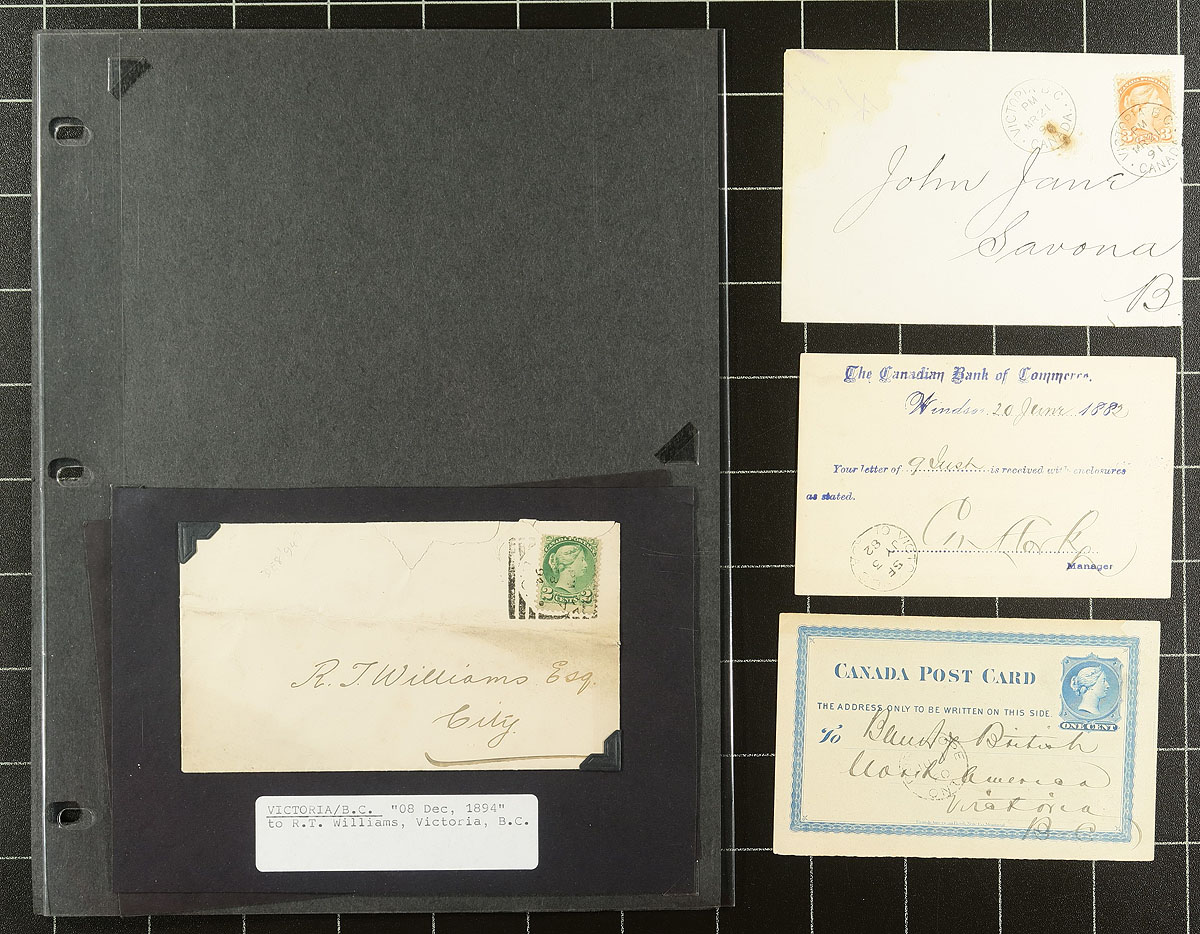 R. T. Williams Esq.
City.
2 CENTS 2
VICTORIA/B.C. "08 Dec, 1894"
to R.T. Williams, Victoria, B.C.
VICTORIA B.C.
PM
MR 21
CANADA
VICTORIA B.C.
PM
91
CANADA
John Jane
Savona
B
The Canadian Bank of Commerce.
Windsor 20 June 1882
Your letter of 9 Inst is received with enclosures
as stated.
Manager
CANADA POST CARD
THE ADDRESS ONLY TO BE WRITTEN ON THIS SIDE.
ONE CENT
To British
North America
Victoria
B C